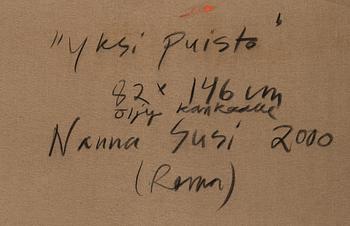 "Yksi puisto"
82 x 146 cm
öljy kankaalle
Nanna Susi 2000
(Rooma)